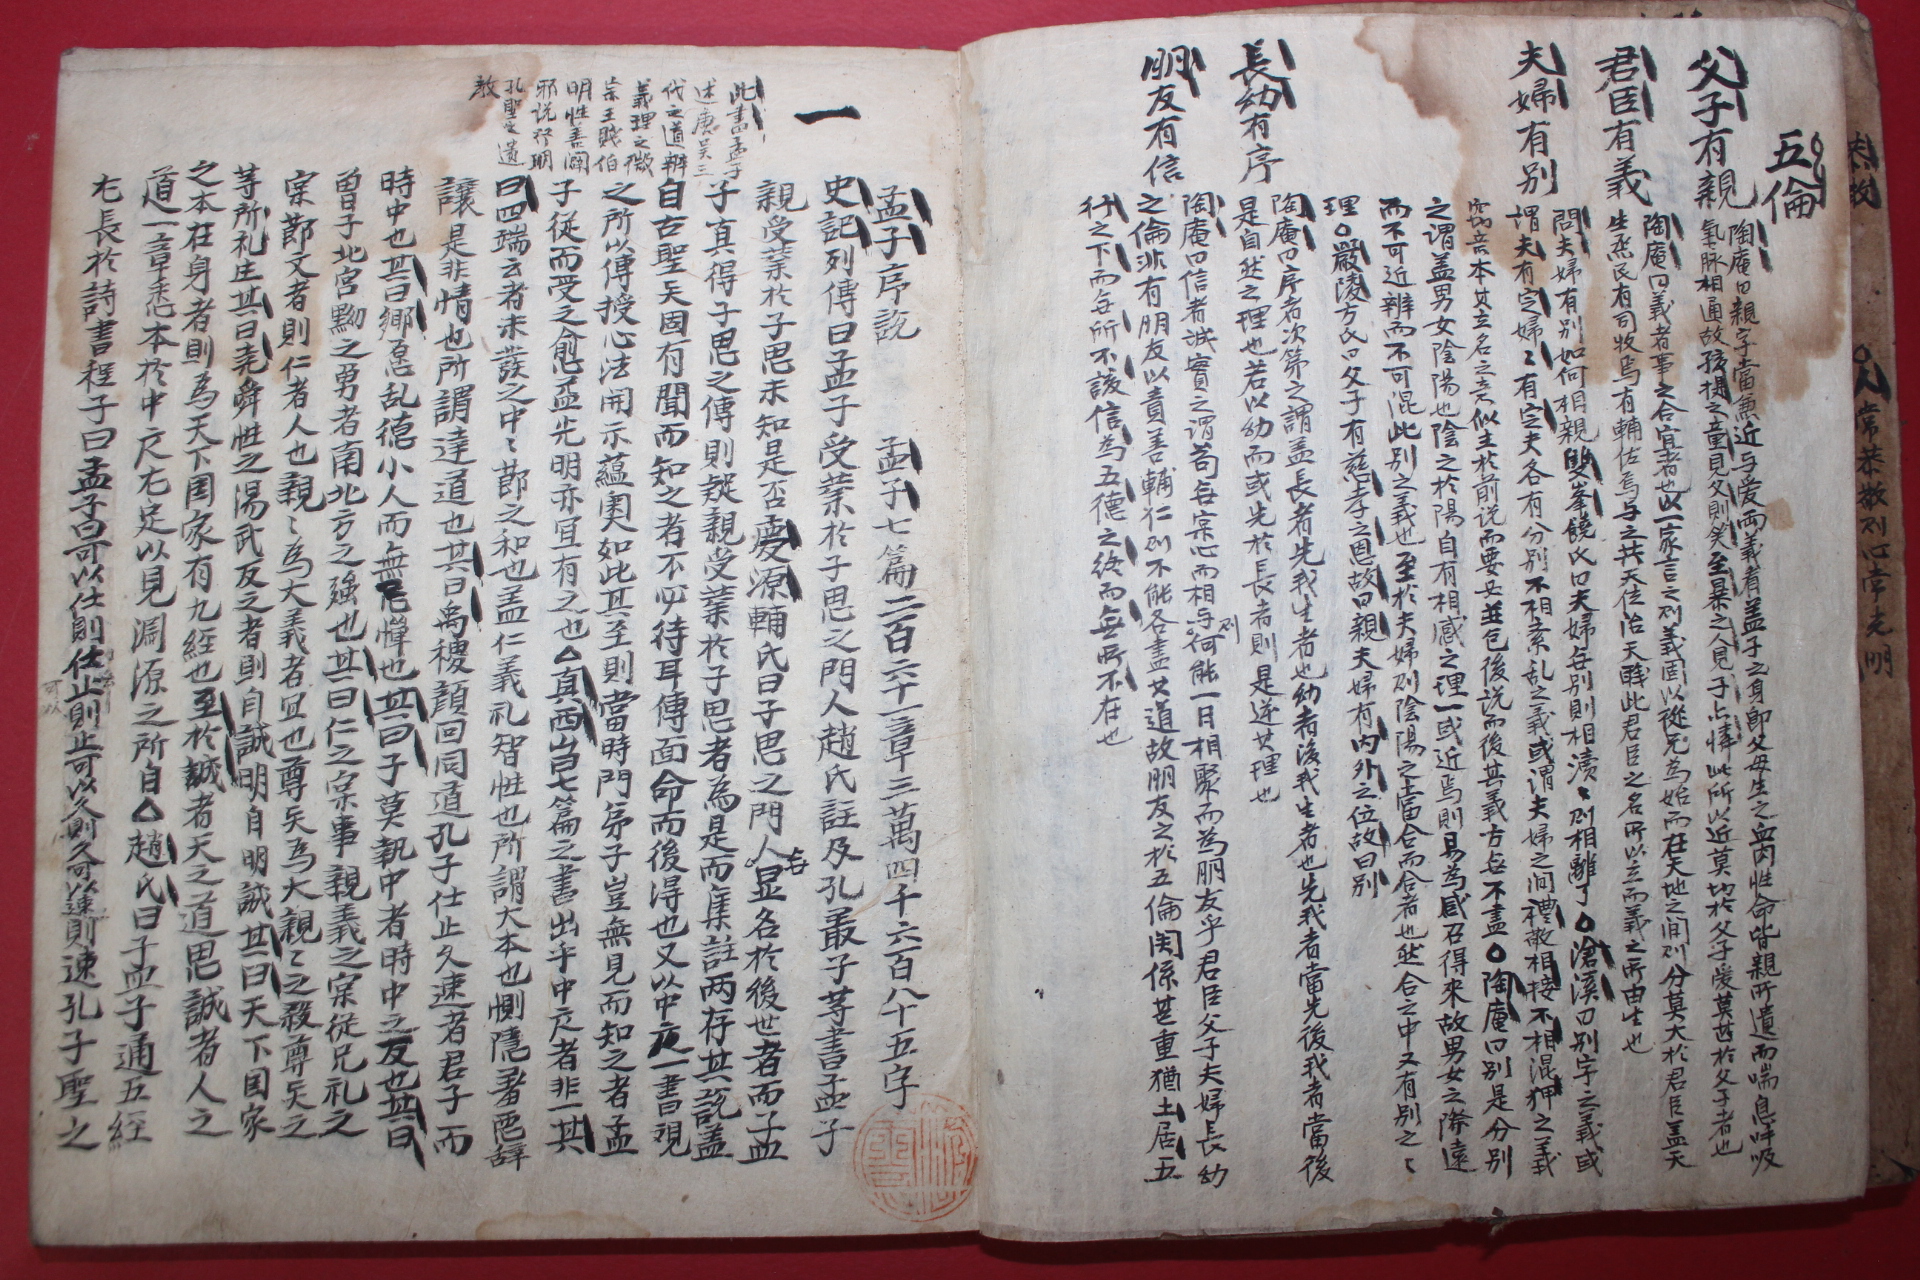 五倫
父子有親
陶庵曰親字當兼近与爱兩義看盖子之身卽父母生之血肉性命皆親所遺而喘息呼吸
氣脉相通故孩提之童見父則笑至暴之人見子亦憐此所以近莫切於父子爱莫甚於父子者也
君臣有義
陶庵曰義者事之合宜者也以一家言之則義固以從兄為始而在天地之間則分莫大於君臣盖天
生烝民有司牧焉有輔佐焉与之共天位治天職此君臣之名所以立而義之所由生也
夫婦有別
問夫婦有別如何相親雙峯饒氏曰夫婦無別則相瀆〻則相離了○滄溪曰別字之義或
謂夫有定婦〻有定夫各有分別不相紊乱之義或謂夫婦之间禮敬相接不相混狎之義
窃意本其立名之意似主於前说而要之並包後说而後其義方無不盡○陶庵曰別是分別
之謂盖男女陰陽也陰之於陽自有相感之理一或近焉則易為感召得來故男女之際遠
而不可近辨而不可混此別之義也至於夫婦則陰陽之當合而合者也然合之中又有別之〻
理○嚴陵方氏曰父子有慈孝之恩故曰親夫婦有内外之位故曰別
長幼有序
陶庵曰序者次第之謂盖長者先我生者也幼者後我生者也先我者當先後我者當後
是自然之理也若以幼而或先於長者則是逆其理也
朋友有信
陶庵曰信者誠實之謂苟無實心而相与則何能一日相聚而為朋友乎君臣父子夫婦長幼
之倫非有朋友以責善輔仁則不能各盡其道故朋友之於五倫関係甚重猶土居五
行之下而無所不該信為五德之終而無所不在也
一
孟子序說 孟子七篇二百六十一章三萬四千六百八十五字
此書孟子
述唐吴三
代之道辨
義理之微
崇王賤伯
明性善闢
邪说行明
孔聖之遺
教
史記列傳曰孟子受業於子思之門人趙氏註及孔叢子等書孟子
親受業於子思未知是否慶源輔氏曰子思之門人無顯名於後世者而子孟
子真得子思之傳則疑親受業於子思者為是而集註两存其說盖
自古聖矢固有聞而知之者不必待耳傳面命而後得也又以中庸一書觀
之所以傳授心法開示蘊奧如此其至則當時門弟子豈無見而知之者孟
子從而受之愈益光明亦宜有之也△真西山曰七篇之書出乎中庸者非一其
曰四端云者未發之中〻節之和也盖仁義礼智性也所謂大本也惻隱羞惡辞
讓是非情也所謂達道也其曰禹稷顔回同道孔子仕止久速者君子而
時中也其曰鄉愿乱德小人而無忌憚也其曰子莫執中者時中之反也其曰
曾子北宮黝之勇者南北方之强也其曰仁之実事親義之実從兄礼之
実節文者則仁者人也親〻為大義者宜也尊矢為大親〻之殺尊矢之
等所礼庄其曰尭舜性之湯武反之者則自誠明自明誠其曰天下国家
之本在身者則為天下国家有九經也至於誠者天之道思誠者人之
道一章悉本於中庸尤足以見淵源之所自△趙氏曰子孟子通五經
尤長於詩書程子曰孟子曰可以仕則仕止則止可以久則久可以速則速孔子聖之